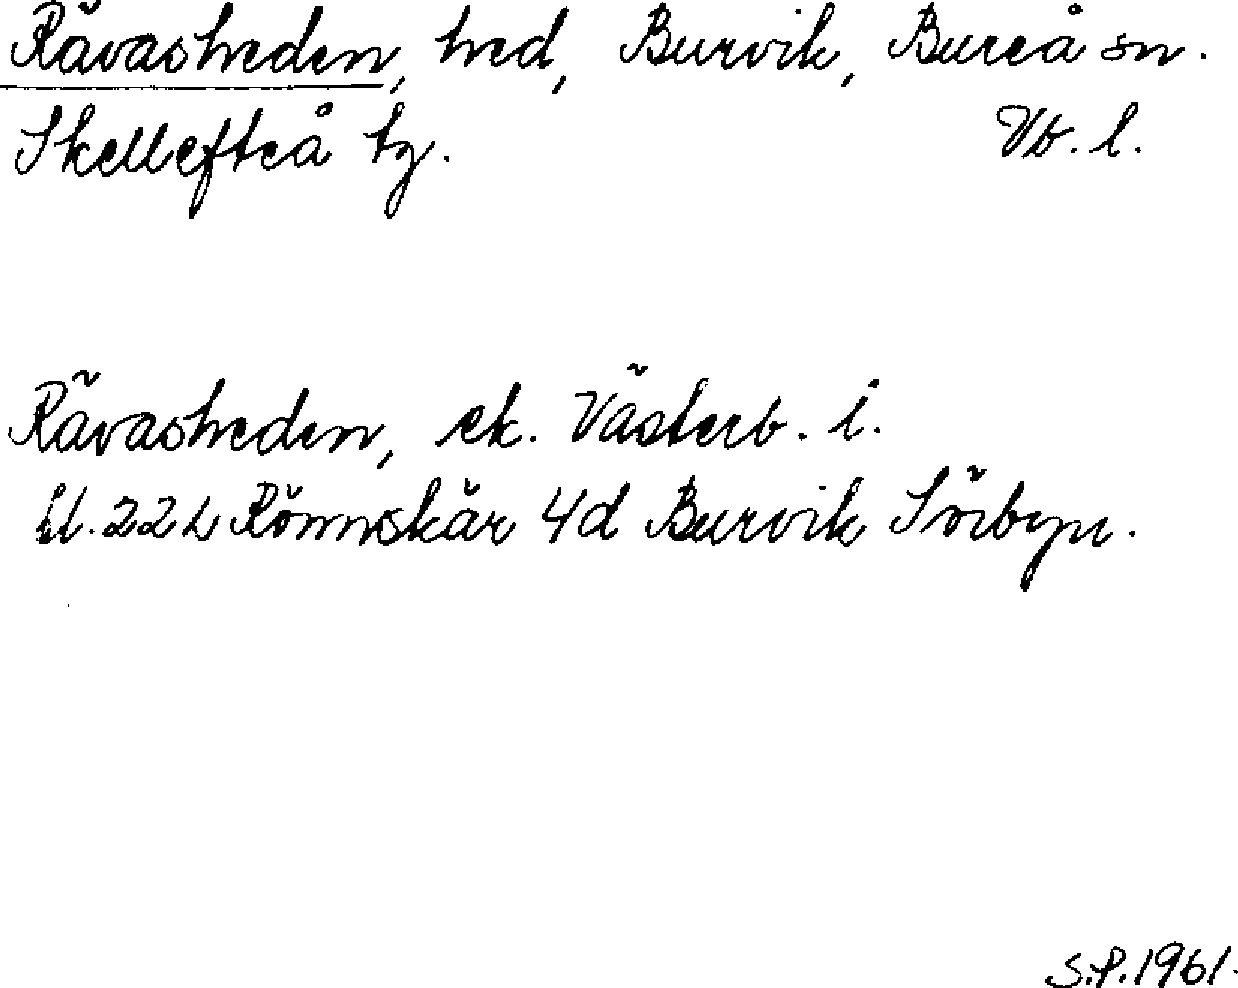 Rävasheden, hed, Burvik, Bureå sn.
Skellefteå tg. Vb. l.
Rävasheden, ek. Västerb. l.
bl. 22 L Rönnskär 4d Burvik Sörbyn.
S.P. 1961.